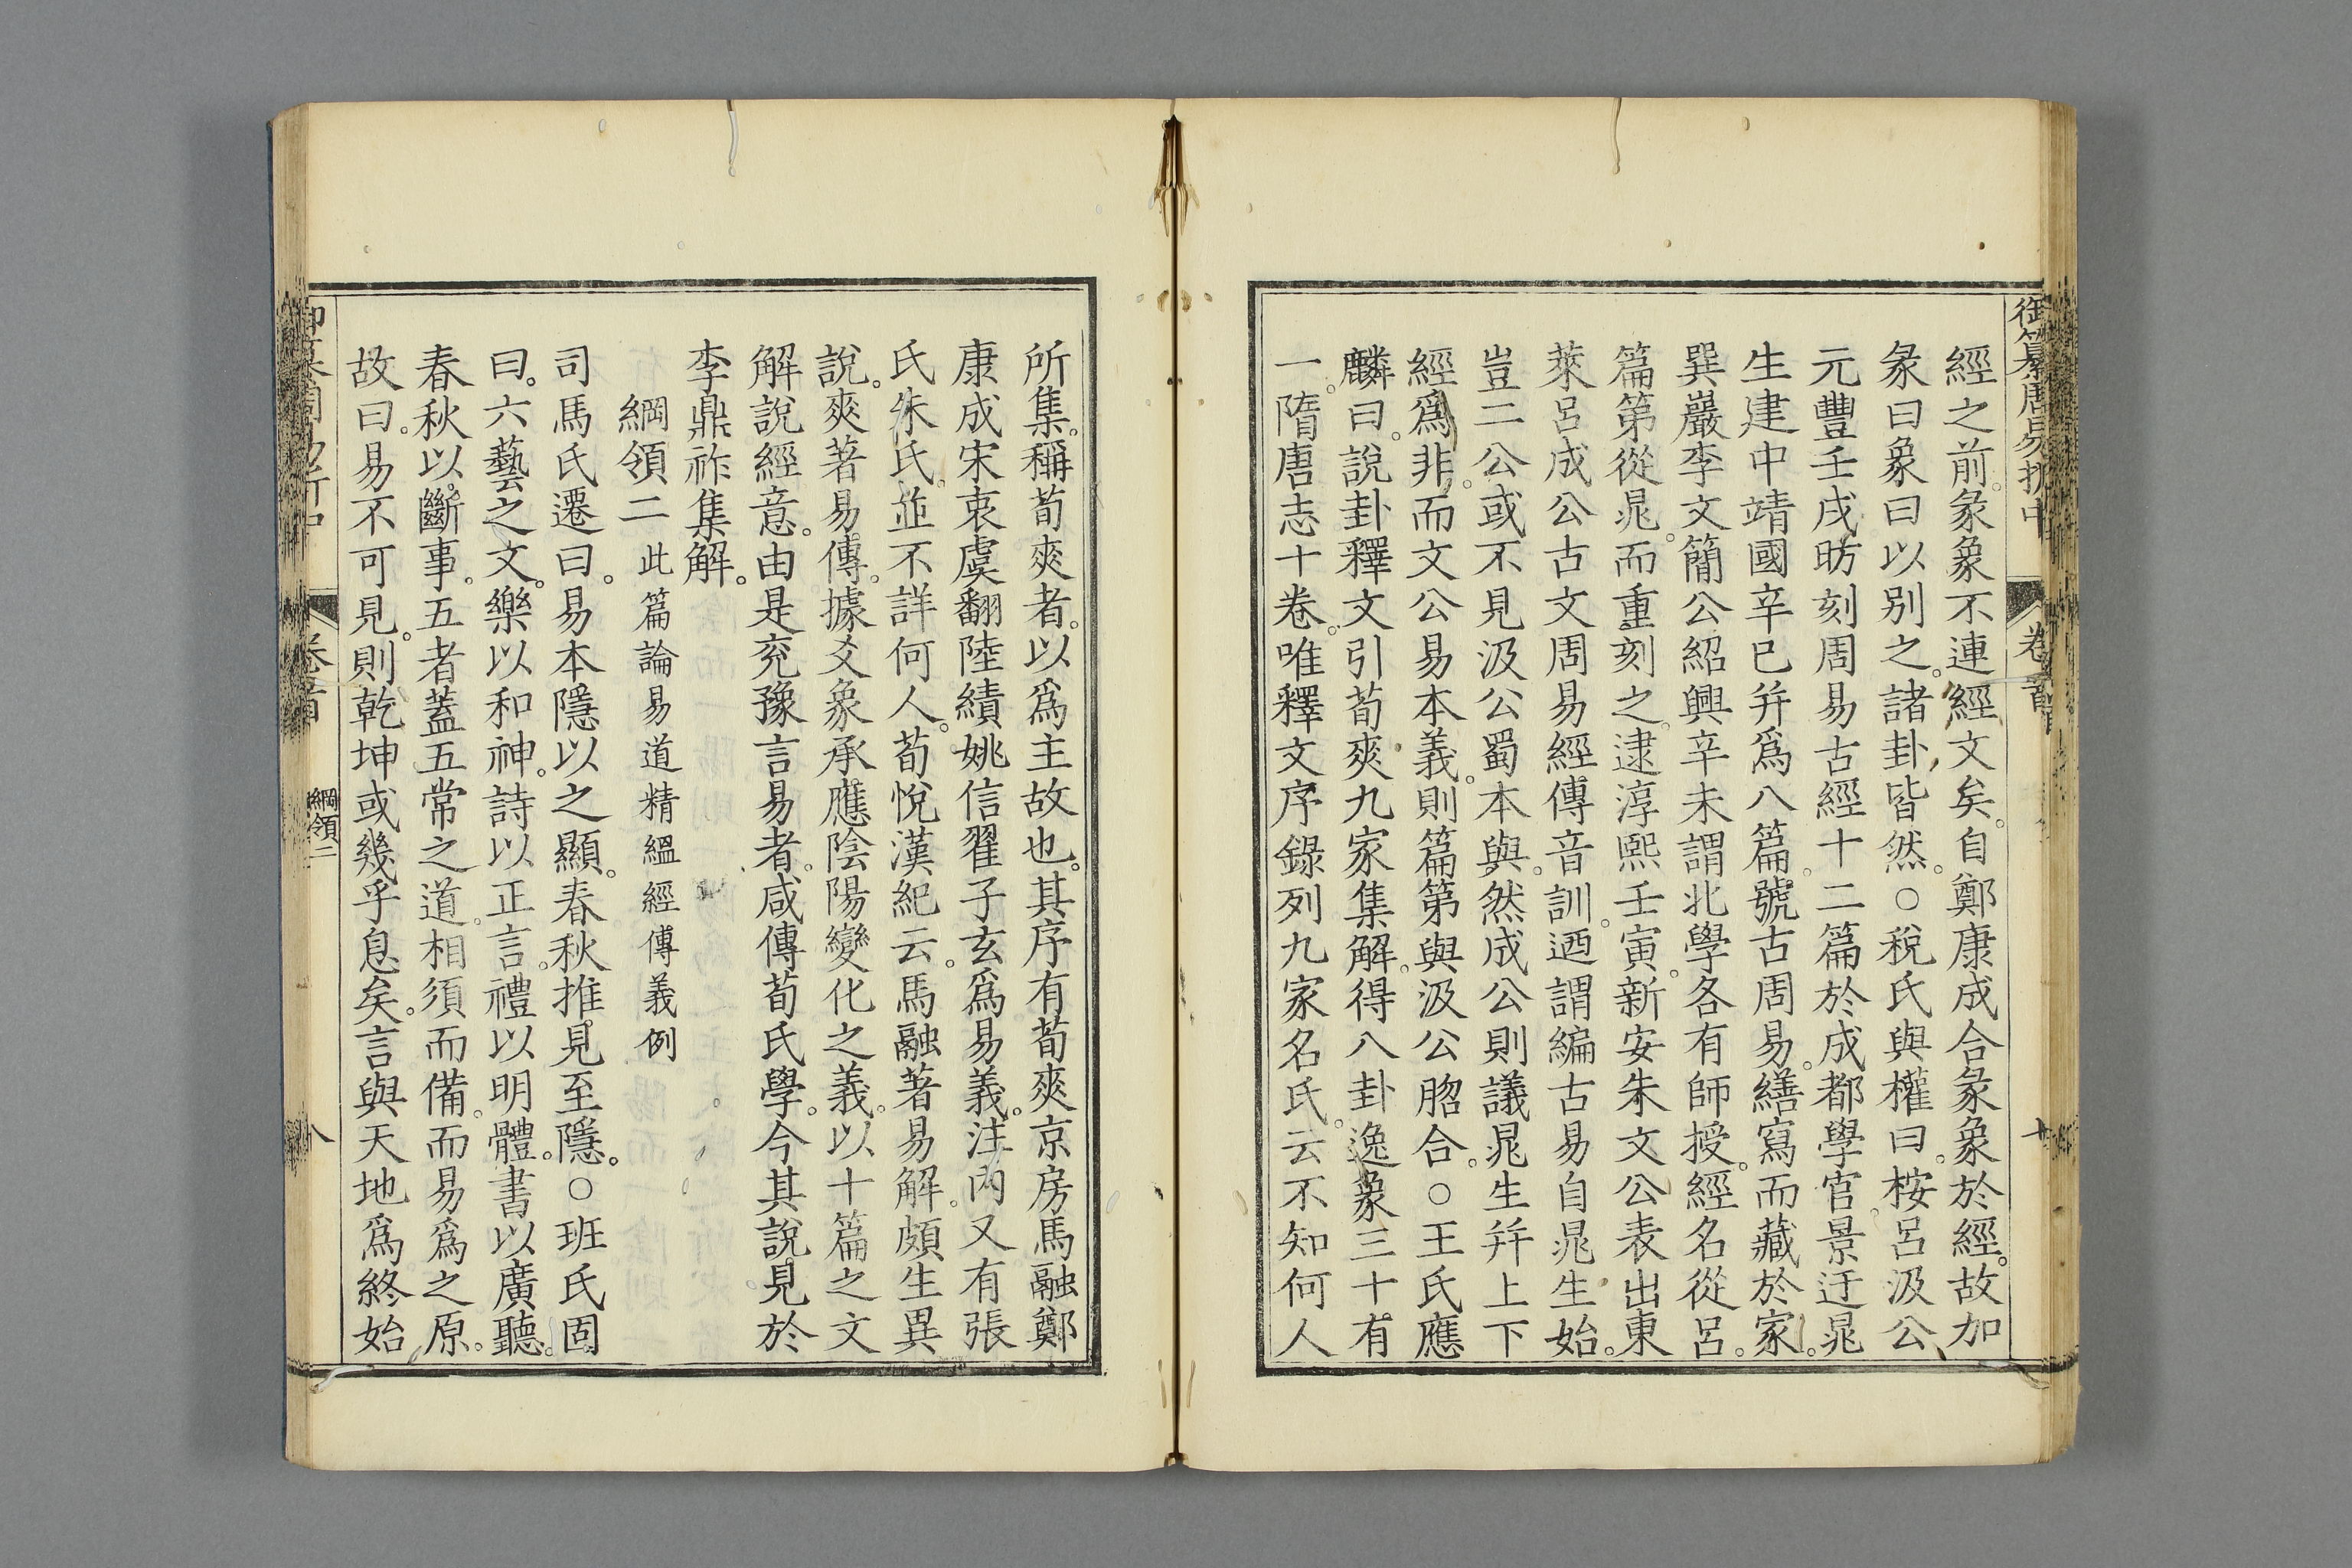 御纂周易折中
卷首
經之前。彖象不連經文矣。自鄭康成合彖象於經。故加
彖曰象曰以别之。諸卦皆然。○稅氏與權曰。桉呂汲公
元豐壬戌昉刻周易古經十二篇於成都學官。景迂晁
生建中靖國辛巳并爲八篇。號古周易。繕寫而藏於家。
巽巖李文簡公紹興辛未謂北學各有師授。經名從呂。
篇第從晁。而重刻之。逮淳熙壬寅。新安朱文公表出東
萊呂成公古文周易經傳音訓。迺謂編古易自晁生始。
豈二公或不見汲公蜀本與。然成公則議晁生并上下
經爲非。而文公易本義。則篇第與汲公脗合。○王氏應
麟曰。說卦釋文引荀爽九家集解。得八卦逸象三十有
一。隋唐志十卷。唯釋文序錄列九家名氏。云不知何人
所集。稱荀爽者。以爲主故也。其序有荀爽京房馬融鄭
康成宋衷虞翻陸績姚信翟子玄爲易義。注內又有張
氏朱氏。並不詳何人。荀悅漢紀云。馬融著易解。頗生異
說。爽著易傳。據爻象承應陰陽變化之義。以十篇之文
解說經意。由是兖豫言易者。咸傳荀氏學。今其說見於
李鼎祚集解。
綱領二 此篇論易道精緼經傳義例
司馬氏遷曰。易本隱以之顯。春秋推見至隱。○班氏固
曰。六藝之文。樂以和神。詩以正言。禮以明體。書以廣聽。
春秋以斷事。五者蓋五常之道。相須而備。而易爲之原。
故曰。易不可見。則乾坤或幾乎息矣。言與天地爲終始
卷首
綱領二
八